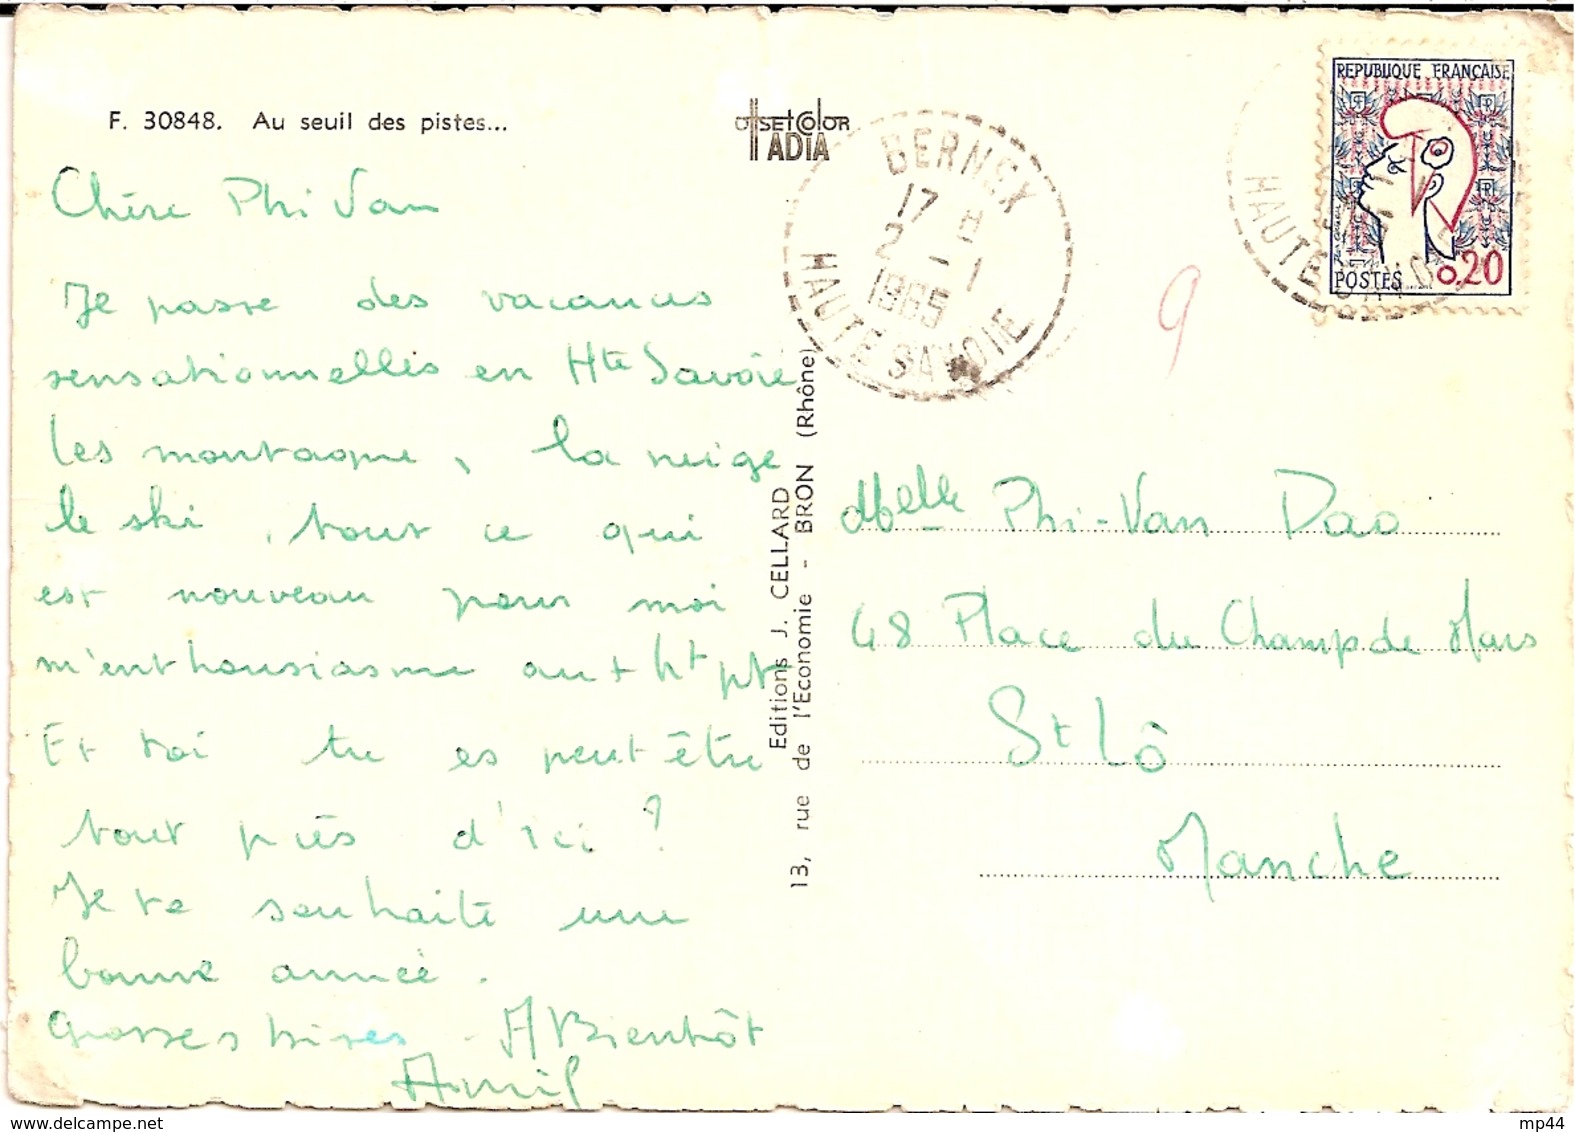 F. 30848. Au seuil des pistes...
offsetcolor
IADIA
Chère Phi Van
Je passe des vacances
sensationnelles en Hte Savoie
les montagne, la neige
le ski, tout ce qui
est nouveau pour moi
m'enthousiasme au + ht pt
Et toi tu es peut être
tout près d'ici ?
Je te souhaite une
bonne année.
Grosses bises - A Bientôt
Editions J. CELLARD
13, rue de l'Economie - BRON (Rhône)
BERNEX
17 H
2 - 1
1965
HAUTE SAVOIE
9
REPUBLIQUE FRANÇAISE
POSTES 0,20
HAUTE
Melle Phi-Van Dao
48 Place du Champ de Mars
St Lô
Manche
delcampe.net
mp44